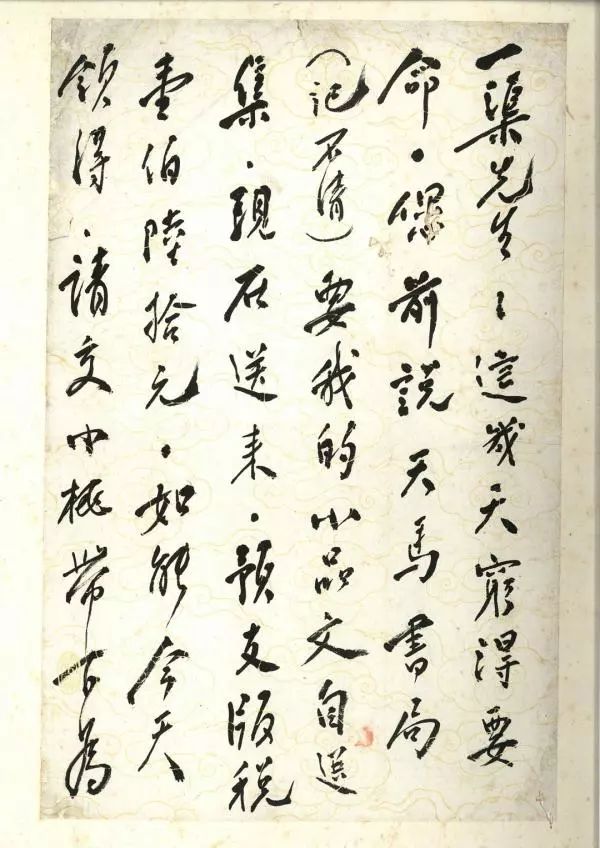 一渠先生：這幾天窮得要
命．您前説天馬書局
（記不清）要我的小品文自選
集．現在送来．預支版税
壹伯陸拾元．如能今天
領得．請交小桃帶下為